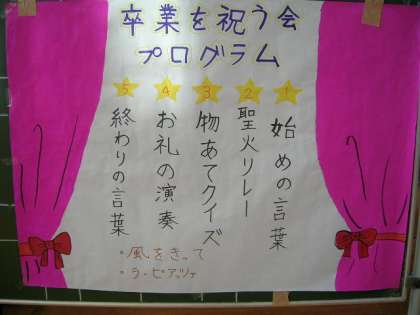 卒業を祝う会
プログラム
1
始めの言葉
2
聖火リレー
3
物あてクイズ
4
お礼の演奏
・風をきって
・ラ・ピアッツァ
5
終わりの言葉